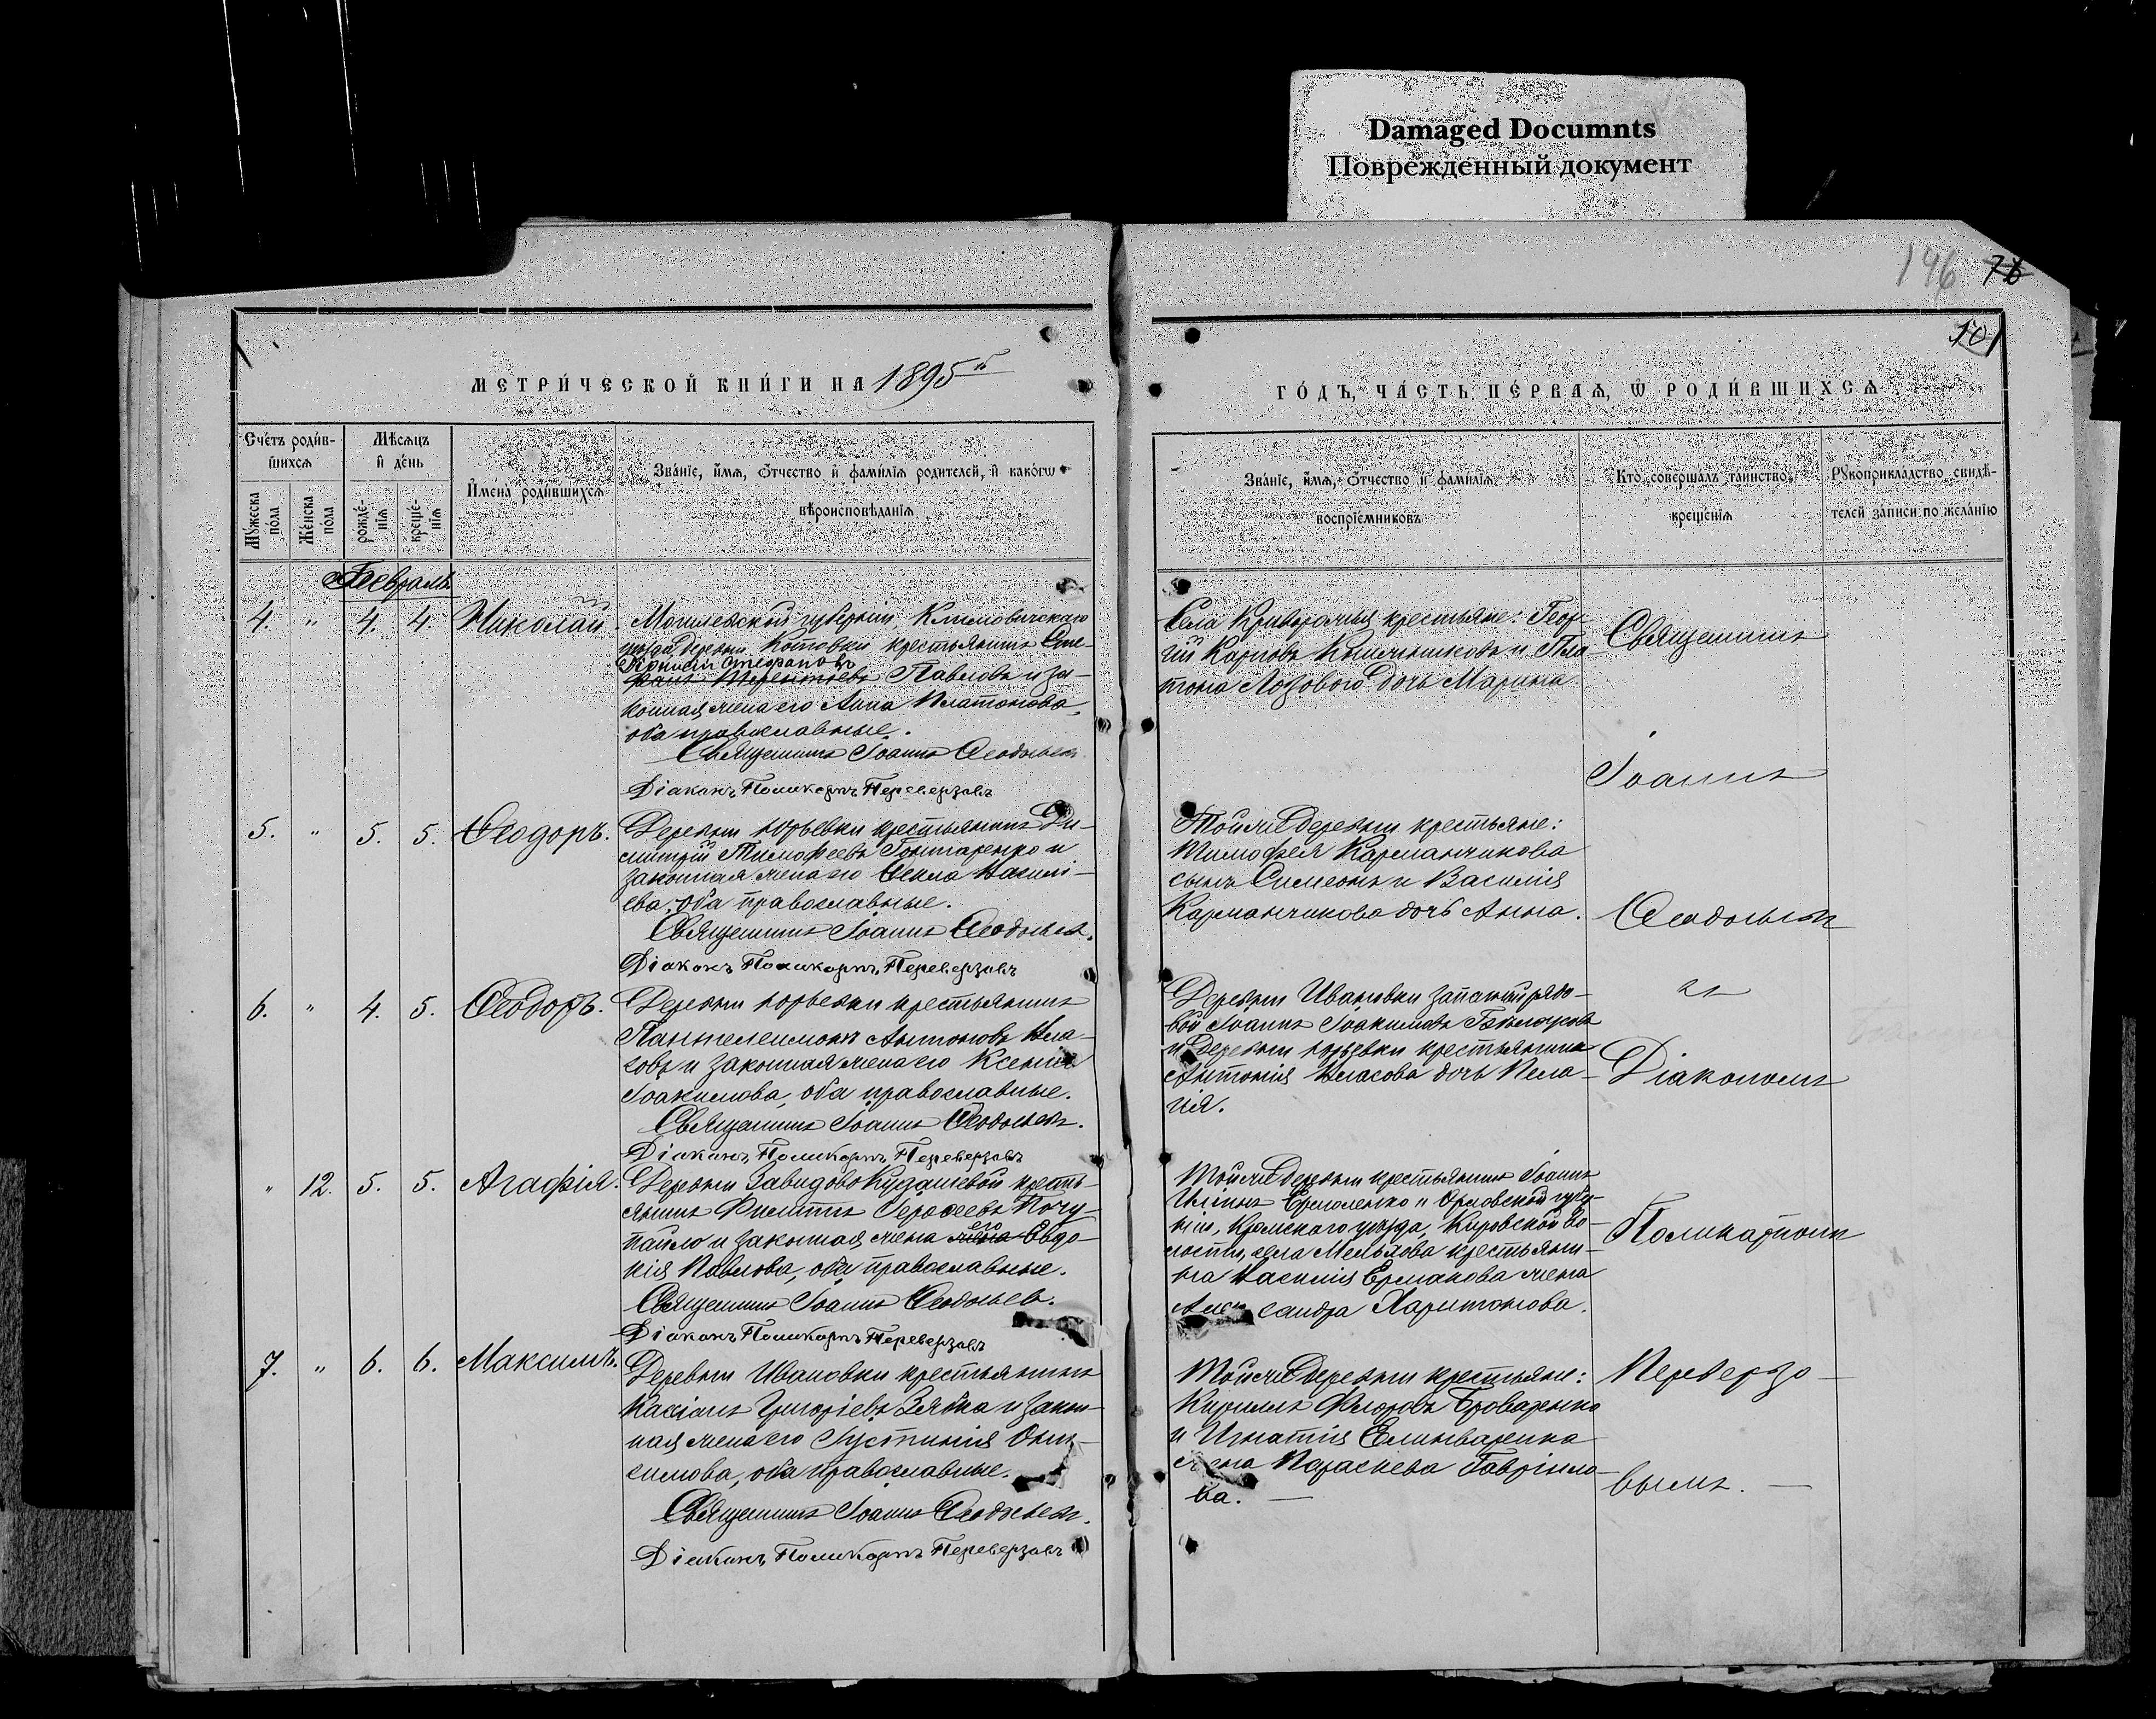 Damaged Documnts
Поврежденный документ
196 76
101
МЕТРИ́ЧЕСКОЙ КНИ́ГИ НА 1895й
ГО́ДЪ, ЧА́СТЬ ПЕ́РВАѦ, Ѿ РОДИ́ВШИХСѦ
Сче́тъ роди́в-
шихсѧ
Мѣ́сѧцъ
и҆ де́нь
Мꙋ́жеска по́ла
Же́нска по́ла
рожде́-нїѧ
креще́-нїѧ
И҆мена̀ роди́вшихсѧ
Зва́нїе, и҆́мѧ, ѻ҆́тчество и҆ фами́лїѧ роди́телей, и҆ како́гѡ
вѣроисповѣ́данїѧ
Зва́нїе, и҆́мѧ, ѻ҆́тчество и҆ фами́лїѧ
воспрїе́мниковъ
Кто̀ соверша́лъ та́инство
креще́нїѧ
Рꙋкоприкла́дство свидѣ́-
телей за́писи по жела́нїю
Февраль
4. " 4. 4. Николай.
Могилевской губерніи, Климовичскаго
уѣзда, деревни Котовки крестьянинъ Сте-
Діонисій Стефановъ
фанъ Терентьевъ Павловъ и за-
конная жена его Анна Платонова,
оба православные.
Священникъ Іоаннъ Ѳеодосьевъ
Діаконъ Поликарпъ Переверзовъ
Села Криворожья крестьяне: Геор-
гій Карповъ и Пла-
тона Лозового дочь Марина.
5. " 5. 5. Ѳеодоръ.
Деревни Юрьевки крестьянинъ Ди-
митрій Тимофеевъ Гонтаренко и
законная жена его Ѳекла Васили-
ева, оба православные.
Священникъ Іоаннъ Ѳеодосьевъ.
Діаконъ Поликарпъ Переверзовъ
Той же деревни крестьяне:
Тимофея Карманчикова
сынъ Симеонъ и Василія
Карманчикова дочь Анна.
6. " 4. 5. Ѳеодоръ.
Деревни Юрьевки крестьянинъ
Пантелеимонъ Антоновъ Вла-
совъ и законная жена его Ксенія
Іоакимова, оба православные.
Священникъ Іоаннъ Ѳеодосьевъ.
Діаконъ Поликарпъ Переверзовъ
Деревни Ивановки запасный рядо-
вой Іоаннъ Іоакимовъ
и деревни Юрьевки крестьянина
Антонія Власова дочь Пела-
гія.
" 12. 5. 5. Агафія.
Деревни Завидово Кудашевой кресть-
янинъ Филиппъ Ерофеевъ Почу-
его
пайло и законная жена жена Евдо-
кія Павлова, оба православные.
Священникъ Іоаннъ Ѳеодосьевъ.
Діаконъ Поликарпъ Переверзовъ
Той же деревни крестьянинъ Іоаннъ
Ильинъ Ермоленко и Орловской губер-
ніи, Кромского уѣзда, Кировской во-
лости, села Мелькова крестьяни-
на Василія Ермакова жена
Александра Харитонова.
7. " 6. 6. Максимъ.
Деревни Ивановки крестьянинъ
Кассіанъ Григоріевъ Зябка и закон-
ная жена его Іустинія Они-
симова, оба православные.
Священникъ Іоаннъ Ѳеодосьевъ.
Діаконъ Поликарпъ Переверзовъ
Той же деревни крестьяне:
Кириллъ Флоровъ Броваренко
и Игнатія Елинваренка
жена Параскева Гавріило-
ва. —
Священникъ
Іоаннъ
Ѳеодосьевъ
съ
Діакономъ
Поликарпомъ
Переверзо-
вымъ. —